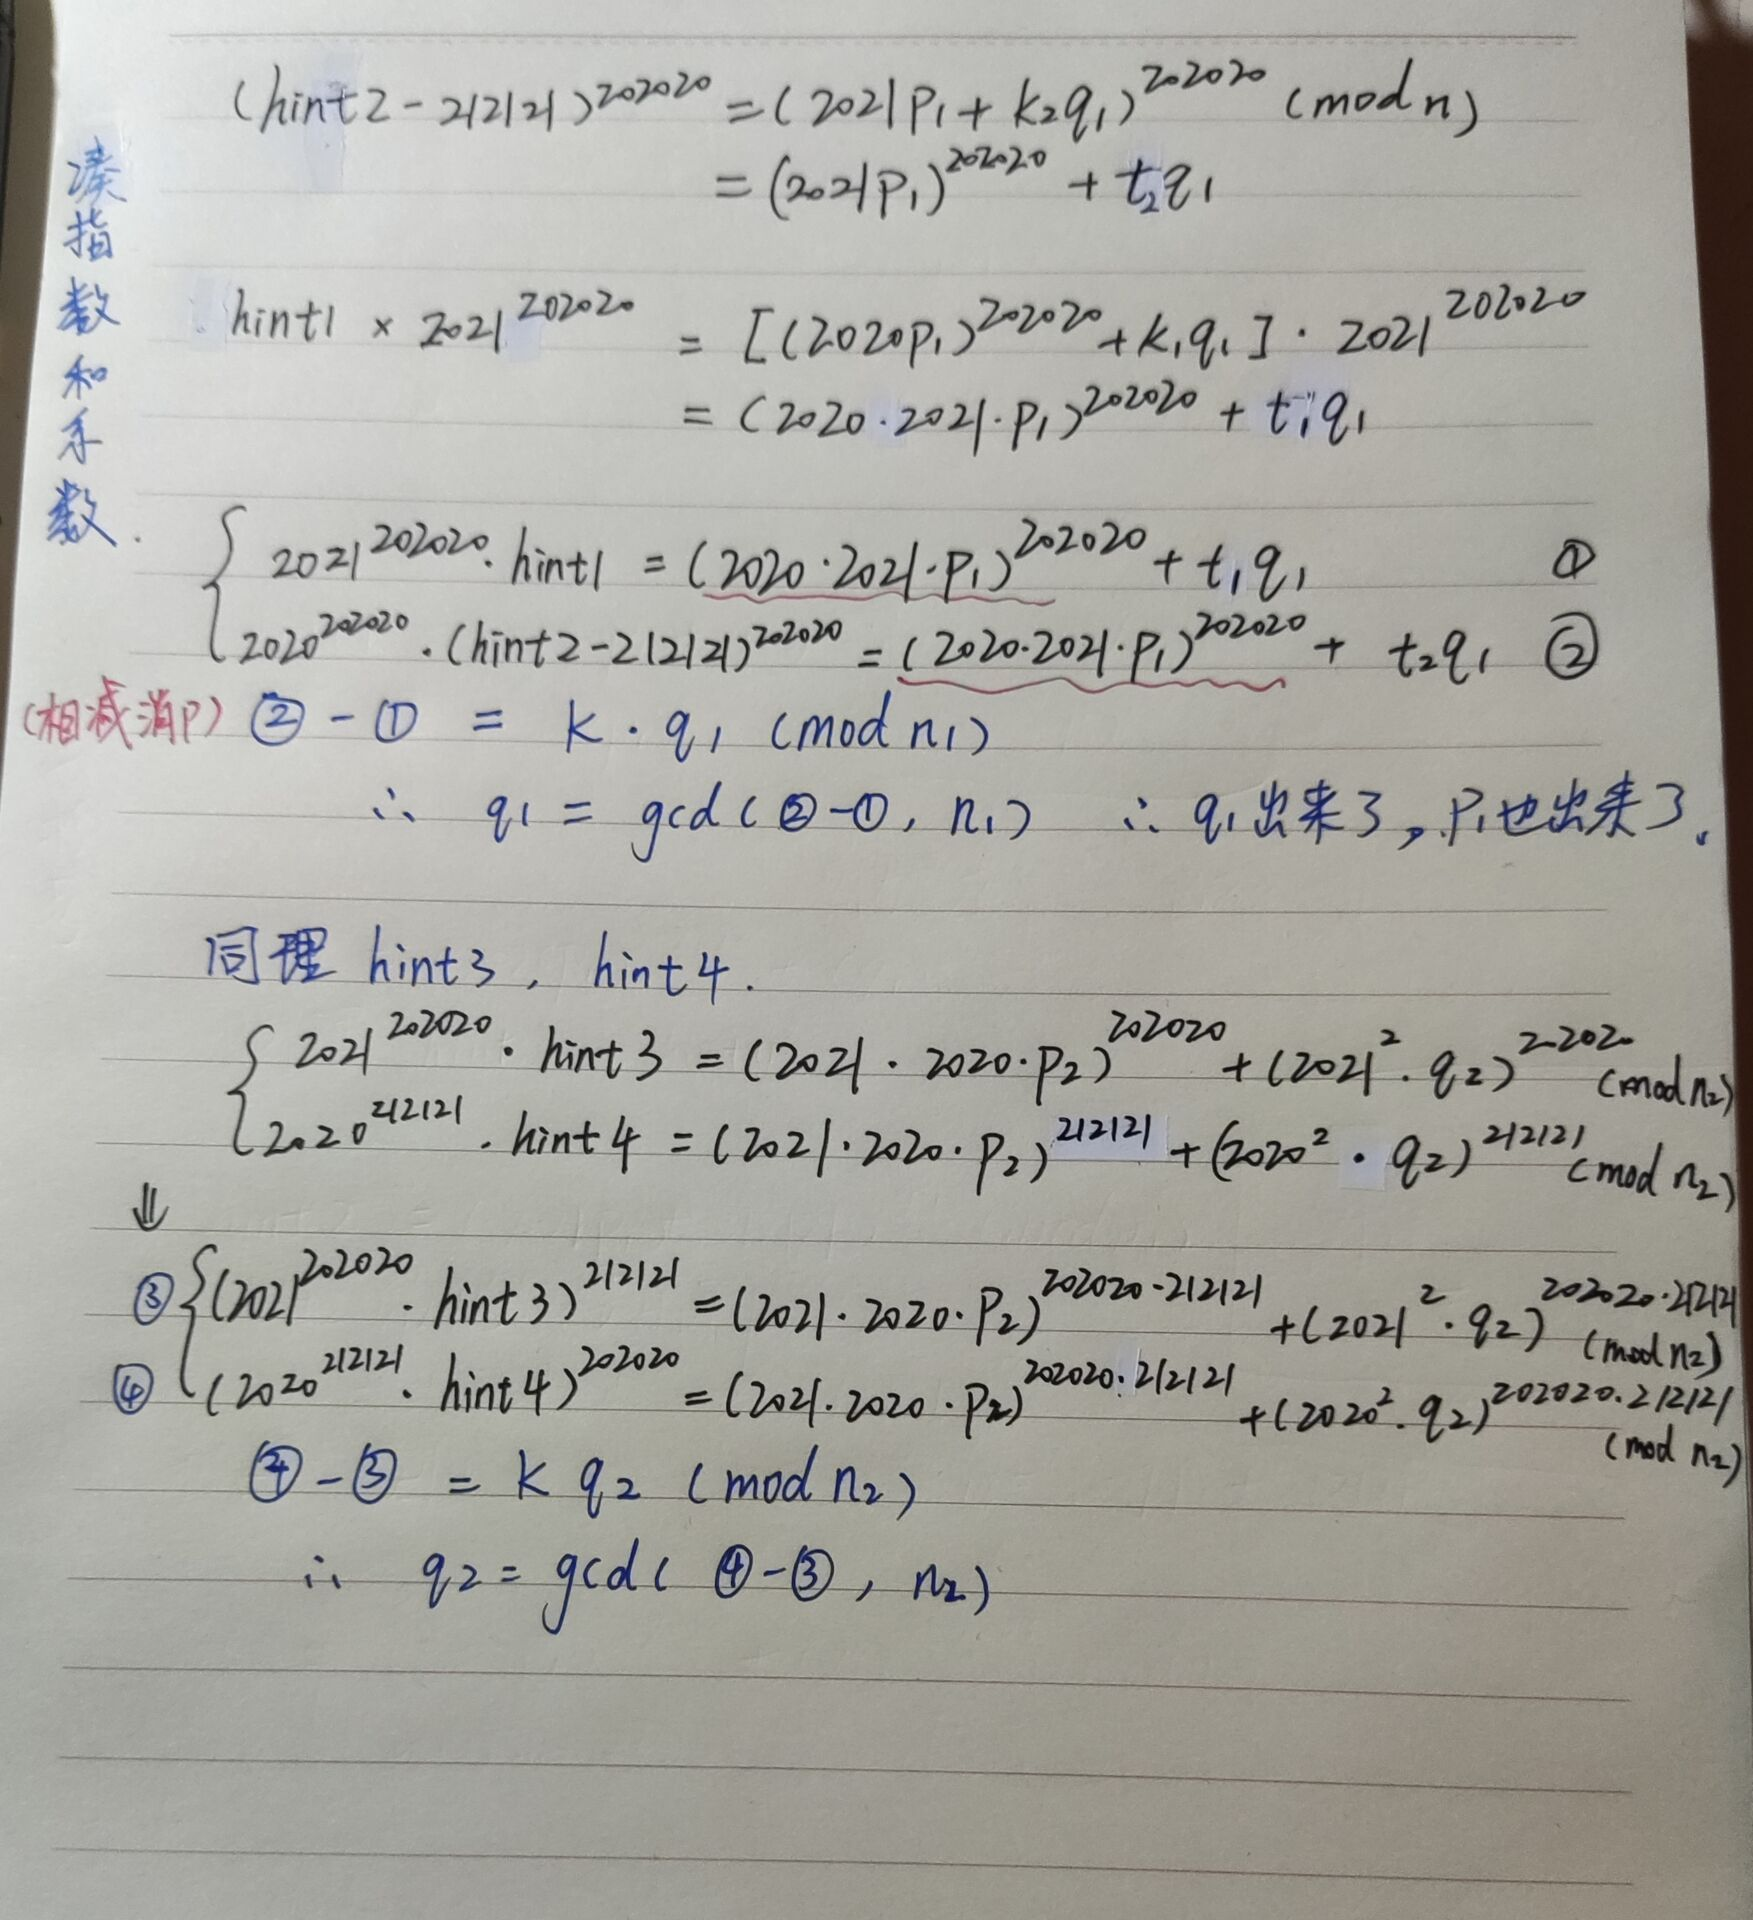 (hint2-212121)^202020 = (2021p₁ + k₂q₁)^202020 (mod n)
= (2021p₁)^202020 + t₂q₁
凑指数和系数.
hint1 × 2021^202020 = [(2020p₁)^202020 + k₁q₁] · 2021^202020
= (2020·2021·p₁)^202020 + t₁q₁
{ 2021^202020 · hint1 = (2020·2021·p₁)^202020 + t₁q₁ ①
2020^202020 · (hint2-212121)^202020 = (2020·2021·p₁)^202020 + t₂q₁ ②
(相减消p) ② - ① = k · q₁ (mod n₁)
∴ q₁ = gcd(②-①, n₁) ∴ q₁出来了, p₁也出来了.
同理 hint3, hint4.
{ 2021^202020 · hint3 = (2021·2020·p₂)^202020 + (2021²·q₂)^202020 (mod n₂)
2020^212121 · hint4 = (2021·2020·p₂)^212121 + (2020²·q₂)^212121 (mod n₂)
⇓
③ { (2021^202020 · hint3)^212121 = (2021·2020·p₂)^202020·212121 + (2021²·q₂)^202020·212121 (mod n₂)
④ (2020^212121 · hint4)^202020 = (2021·2020·p₂)^202020·212121 + (2020²·q₂)^202020·212121 (mod n₂)
④ - ③ = k q₂ (mod n₂)
∴ q₂ = gcd(④-③, n₂)